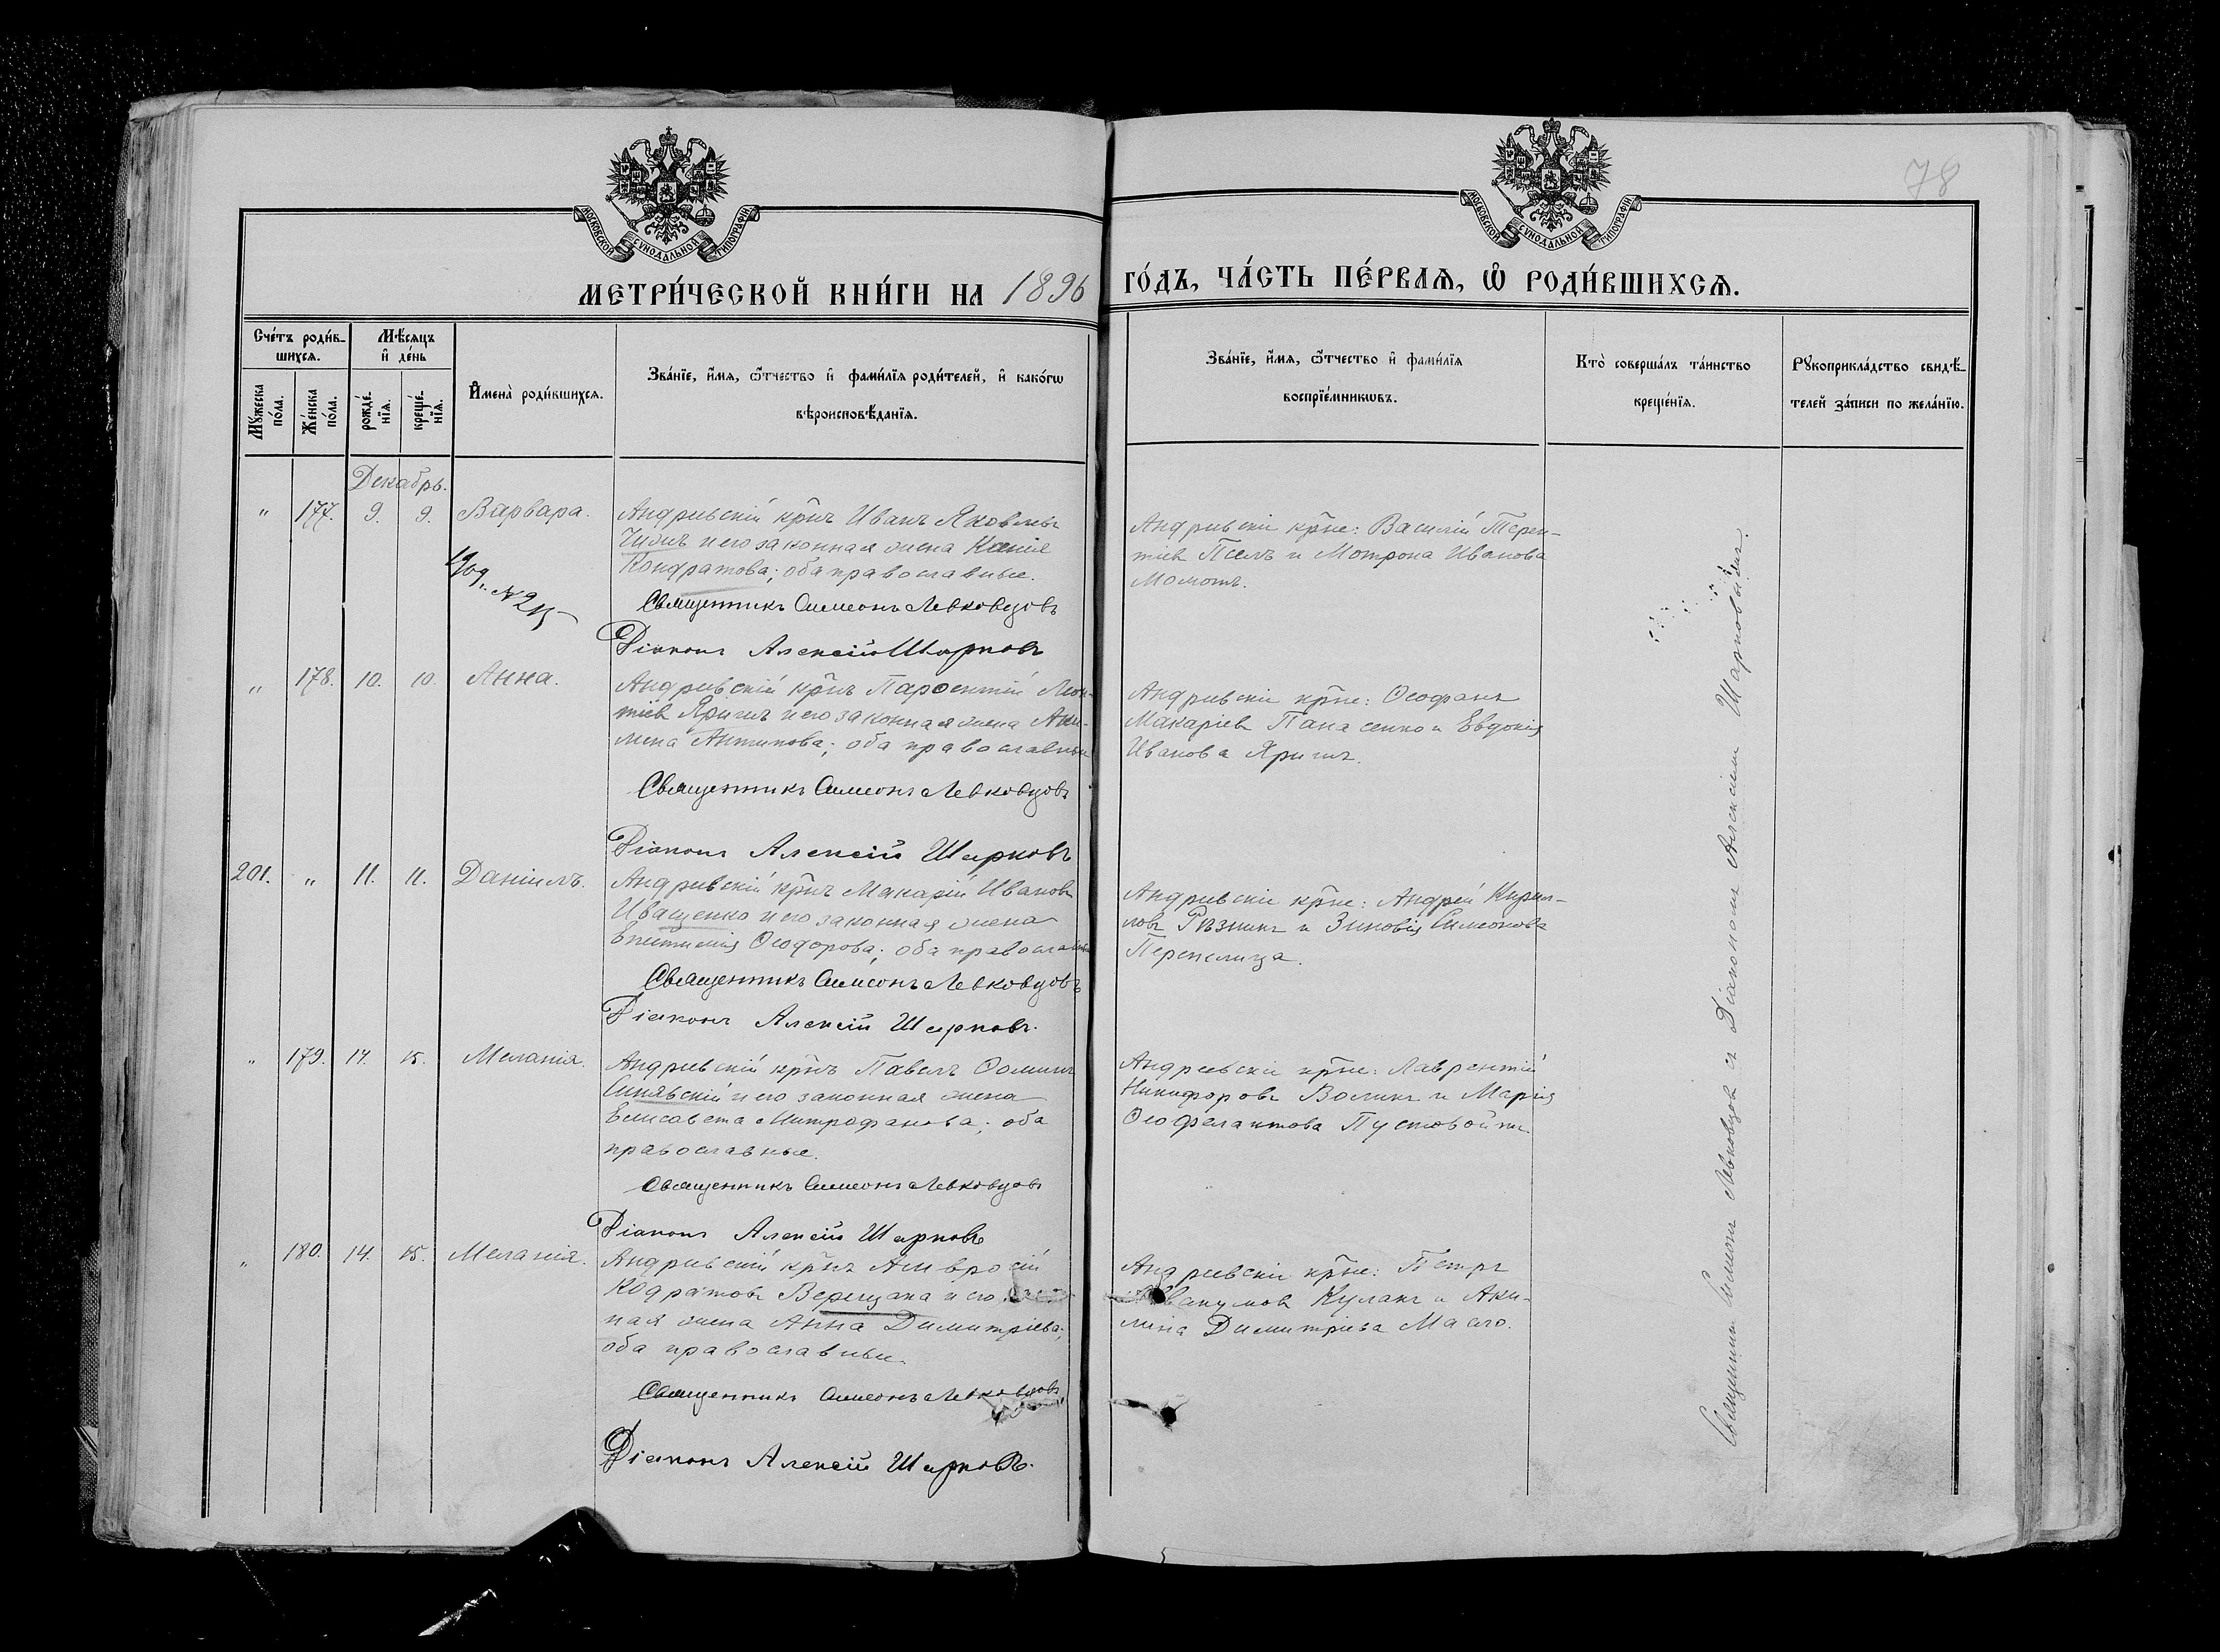 78
МОСКОВСКОЙ СѴНОДАЛЬНОЙ ТИПОГРАФІИ
МОСКОВСКОЙ СѴНОДАЛЬНОЙ ТИПОГРАФІИ
МЕТРИ́ЧЕСКОЙ КНИ́ГИ НА 1896 ГО́ДЪ, ЧА́СТЬ ПЕ́РВАѦ, Ѡ҆ РОДИ́ВШИХСѦ.
Сче́тъ роди́в-
шихсѧ.
Мѣ́сѧцъ
и҆ де́нь
Мꙋ́жеска
по́ла.
Же́нска
по́ла.
рожде́-
нїѧ.
креще́-
нїѧ.
И҆мена̀ роди́вшихсѧ.
Зва́нїе, и҆́мѧ, ѻ҆́тчество и҆ фами́лїѧ роди́телей, и҆ како́гѡ
вѣроисповѣ́данїѧ.
Зва́нїе, и҆́мѧ, ѻ҆́тчество и҆ фами́лїѧ
воспрїе́мникѡвъ.
Кто̀ соверша́лъ та́инство
креще́нїѧ.
Рꙋкоприкла́дство свидѣ́-
телей за́писи по жела́нїю.
Декабрь.
" 177. 9. 9. Варвара.
Андреевскій кр̃нъ Иванъ Яковлевъ
и его законная жена Ксенія
Кондратова; оба православные.
Священникъ Симеонъ Левковцовъ
Діаконъ Алексій Шарковъ
Андреевскіе кр̃не: Василій Терен-
тіевъ Пселъ и Мотрона Иванова
Момотъ.
" 178. 10. 10. Анна.
Андреевскій кр̃нъ Парѳентій Леон-
тіевъ Яригъ и его законная жена Аки-
лина Антипова; оба православные
Священникъ Симеонъ Левковцовъ
Діаконъ Алексій Шарковъ
Андреевскіе кр̃не: Ѳеофанъ
Макаріевъ Панасенко и Евдокія
Иванова Яригъ.
201. " 11. 11. Даніилъ.
Андреевскій кр̃нъ Макарій Ивановъ
Иващенко и его законная жена
Епистимія Ѳеодорова; оба православные
Священникъ Симеонъ Левковцовъ
Діаконъ Алексій Шарковъ.
Андреевскіе кр̃не: Андрей Кирил-
ловъ Рѣзникъ и Зиновія Симеонова
Перепелица.
" 179. 14. 15. Меланія.
Андреевскій кр̃нъ Павелъ Ѳоминъ
Синявскій и его законная жена
Елисавета Митрофанова; оба
православные.
Священникъ Симеонъ Левковцовъ
Діаконъ Алексій Шарковъ
Андреевскіе кр̃не: Лаврентій
Никифоровъ Воликъ и Марія
Ѳеофелактова Пустовойтъ.
" 180. 14. 15. Меланія.
Андреевскій кр̃нъ Амвросій
Кодратовъ Верещака и его
ная жена Анна Димитріева;
оба православные.
Священникъ Симеонъ Левковцовъ
Діаконъ Алексій Шарковъ.
Андреевскіе кр̃не: Петръ
Кулакъ и Аки-
лина Димитріева Масло.
Священникъ Симеонъ Левковцовъ съ Діакономъ Алексіемъ Шарковымъ.